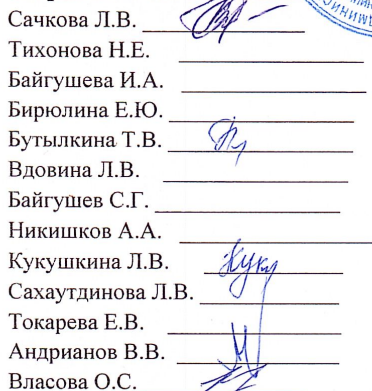 Сачкова Л.В.
Тихонова Н.Е.
Байгушева И.А.
Бирюлина Е.Ю.
Бутылкина Т.В.
Вдовина Л.В.
Байгушев С.Г.
Никишков А.А.
Кукушкина Л.В.
Сахаутдинова Л.В.
Токарева Е.В.
Андрианов В.В.
Власова О.С.